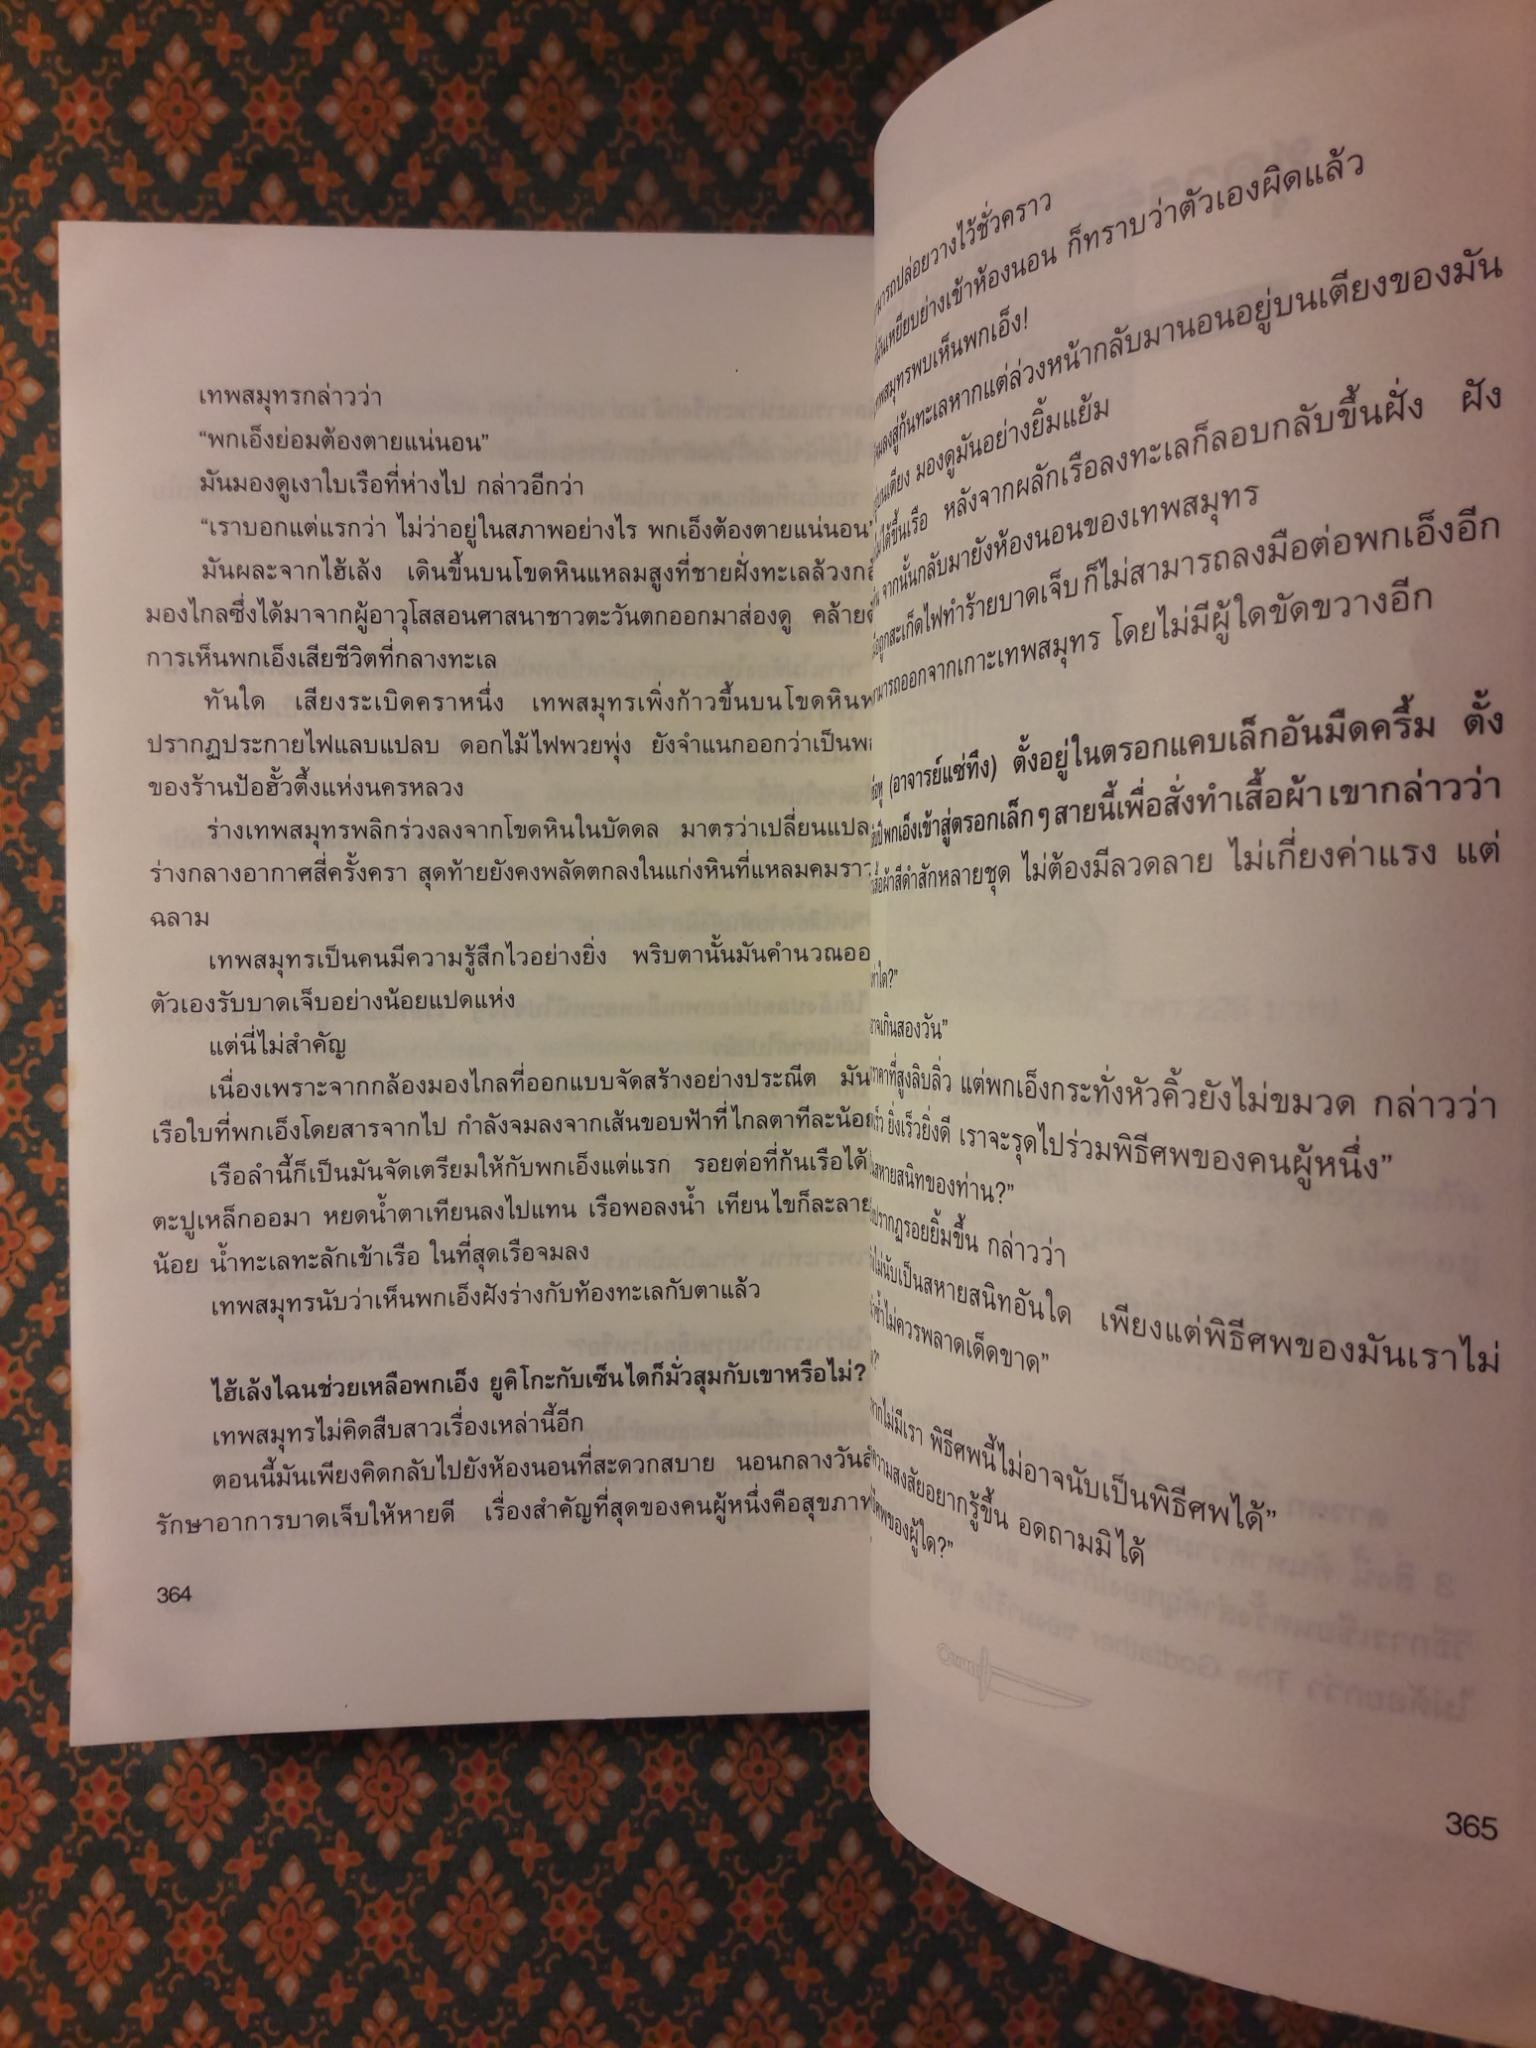 เทพสมุทรกล่าวว่า
“พกเอ็งย่อมต้องตายแน่นอน”
มันมองดูเงาใบเรือที่ห่างไป กล่าวอีกว่า
“เราบอกแต่แรกว่า ไม่ว่าอยู่ในสภาพอย่างไร พกเอ็งต้องตายแน่นอน”
มันผละจากไฮ้เล้ง เดินขึ้นบนโขดหินแหลมสูงที่ชายฝั่งทะเลล้วงกล้
มองไกลซึ่งได้มาจากผู้อาวุโสสอนศาสนาชาวตะวันตกออกมาส่องดู คล้าย
การเห็นพกเอ็งเสียชีวิตที่กลางทะเล
ทันใด เสียงระเบิดคราหนึ่ง เทพสมุทรเพิ่งก้าวขึ้นบนโขดหินพ
ปรากฏประกายไฟแลบแปลบ ดอกไม้ไฟพวยพุ่ง ยังจำแนกออกว่าเป็นพล
ของร้านป้อฮั้วตึ้งแห่งนครหลวง
ร่างเทพสมุทรพลิกร่วงลงจากโขดหินในบัดดล มาตรว่าเปลี่ยนแปล
ร่างกลางอากาศสี่ครั้งครา สุดท้ายยังคงพลัดตกลงในแก่งหินที่แหลมคมราว
ฉลาม
เทพสมุทรเป็นคนมีความรู้สึกไวอย่างยิ่ง พริบตานั้นมันคำนวณออ
ตัวเองรับบาดเจ็บอย่างน้อยแปดแห่ง
แต่นี่ไม่สำคัญ
เนื่องเพราะจากกล้องมองไกลที่ออกแบบจัดสร้างอย่างประณีต มัน
เรือใบที่พกเอ็งโดยสารจากไป กำลังจมลงจากเส้นขอบฟ้าที่ไกลตาทีละน้อย
เรือลำนี้ก็เป็นมันจัดเตรียมให้กับพกเอ็งแต่แรก รอยต่อที่ก้นเรือได้
ตะปูเหล็กออมา หยดน้ำตาเทียนลงไปแทน เรือพอลงน้ำ เทียนไขก็ละลาย
น้อย น้ำทะเลทะลักเข้าเรือ ในที่สุดเรือจมลง
เทพสมุทรนับว่าเห็นพกเอ็งฝังร่างกับท้องทะเลกับตาแล้ว
ไฮ้เล้งไฉนช่วยเหลือพกเอ็ง ยูคิโกะกับเซ็นไดก็มั่วสุมกับเขาหรือไม่?
เทพสมุทรไม่คิดสืบสาวเรื่องเหล่านี้อีก
ตอนนี้มันเพียงคิดกลับไปยังห้องนอนที่สะดวกสบาย นอนกลางวัน
รักษาอาการบาดเจ็บให้หายดี เรื่องสำคัญที่สุดของคนผู้หนึ่งคือสุขภาพ
364
มารถปล่อยวางไว้ชั่วคราว
มันเหยียบย่างเข้าห้องนอน ก็ทราบว่าตัวเองผิดแล้ว
เทพสมุทรพบเห็นพกเอ็ง!
จมลงสู่ก้นทะเลหากแต่ล่วงหน้ากลับมานอนอยู่บนเตียงของมัน
บนเตียง มองดูมันอย่างยิ้มแย้ม
ไม่ได้ขึ้นเรือ หลังจากผลักเรือลงทะเลก็ลอบกลับขึ้นฝั่ง ฝัง
จากนั้นกลับมายังห้องนอนของเทพสมุทร
ถูกสะเก็ดไฟทำร้ายบาดเจ็บ ก็ไม่สามารถลงมือต่อพกเอ็งอีก
สามารถออกจากเกาะเทพสมุทร โดยไม่มีผู้ใดขัดขวางอีก
(อาจารย์แซ่ทึง) ตั้งอยู่ในตรอกแคบเล็กอันมืดครึ้ม ตั้ง
พกเอ็งเข้าสู่ตรอกเล็กๆ สายนี้เพื่อสั่งทำเสื้อผ้า เขากล่าวว่า
เสื้อผ้าสีดำสักหลายชุด ไม่ต้องมีลวดลาย ไม่เกี่ยงค่าแรง แต่
เท่าใด?”
อาจเกินสองวัน”
ราคาที่สูงลิบลิ่ว แต่พกเอ็งกระทั่งหัวคิ้วยังไม่ขมวด กล่าวว่า
เร็ว ยิ่งเร็วยิ่งดี เราจะรุดไปร่วมพิธีศพของคนผู้หนึ่ง”
สหายสนิทของท่าน?”
ปรากฏรอยยิ้มขึ้น กล่าวว่า
ไม่นับเป็นสหายสนิทอันใด เพียงแต่พิธีศพของมันเราไม่
ซ้ำไม่ควรพลาดเด็ดขาด”
หากไม่มีเรา พิธีศพนี้ไม่อาจนับเป็นพิธีศพได้”
ความสงสัยอยากรู้ขึ้น อดถามมิได้
ศพของผู้ใด?”
365